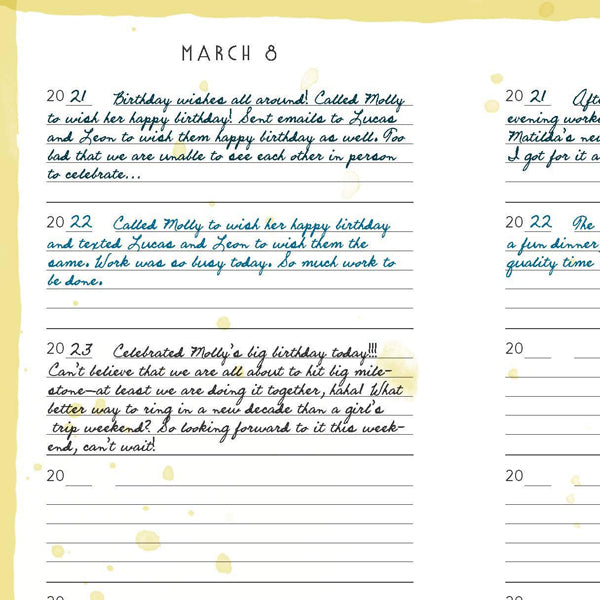 MARCH 8
20 21 Birthday wishes all around! Called Molly
to wish her happy birthday! Sent emails to Lucas
and Leon to wish them happy birthday as well. Too
bad that we are unable to see each other in person
to celebrate...
20 22 Called Molly to wish her happy birthday
and texted Lucas and Leon to wish them the
same. Work was so busy today. So much work to
be done.
20 23 Celebrated Molly's big birthday today!!!
Can't believe that we are all about to hit big mile-
stone—at least we are doing it together, haha! What
better way to ring in a new decade than a girl's
trip weekend? So looking forward to it this week-
end, can't wait!
20
20 21
evening
Matilda's
I got for it
20 22 The
a fun dinner
quality time
20
20